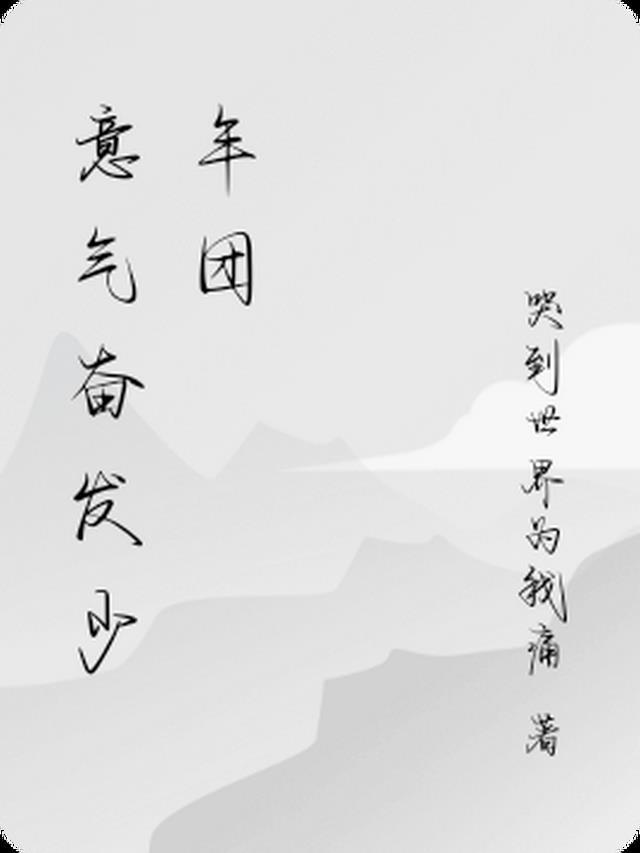 意气奋发少
年团
哭到世界为我痛 著